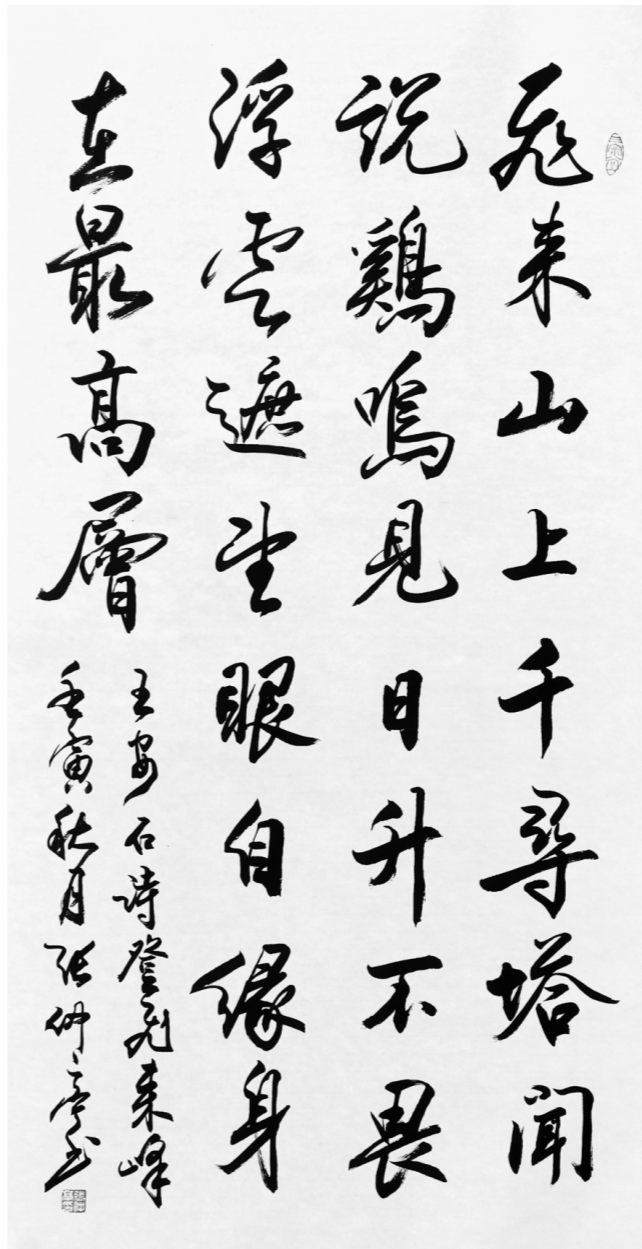 飛来山上千尋塔聞
説鷄鳴見日升不畏
浮雲遮望眼自緣身
在最高層
王安石詩登飛来峰
壬寅秋月張仲亭书